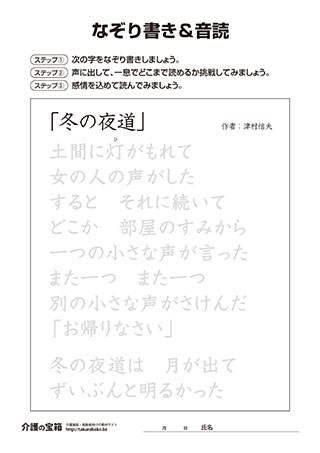 なぞり書き&音読
ステップ① 次の字をなぞり書きしましょう。
ステップ② 声に出して、一息でどこまで読めるか挑戦してみましょう。
ステップ③ 感情を込めて読んでみましょう。
「冬の夜道」 作者：津村信夫
ひ
土間に灯がもれて
女の人の声がした
すると　それに続いて
どこか　部屋のすみから
一つの小さな声が言った
また一つ　また一つ
別の小さな声がさけんだ
「お帰りなさい」
冬の夜道は　月が出て
ずいぶんと明るかった
介護の宝箱 介護施設・高齢者向けの素材サイト
http://takarabako.bz
月　日　氏名